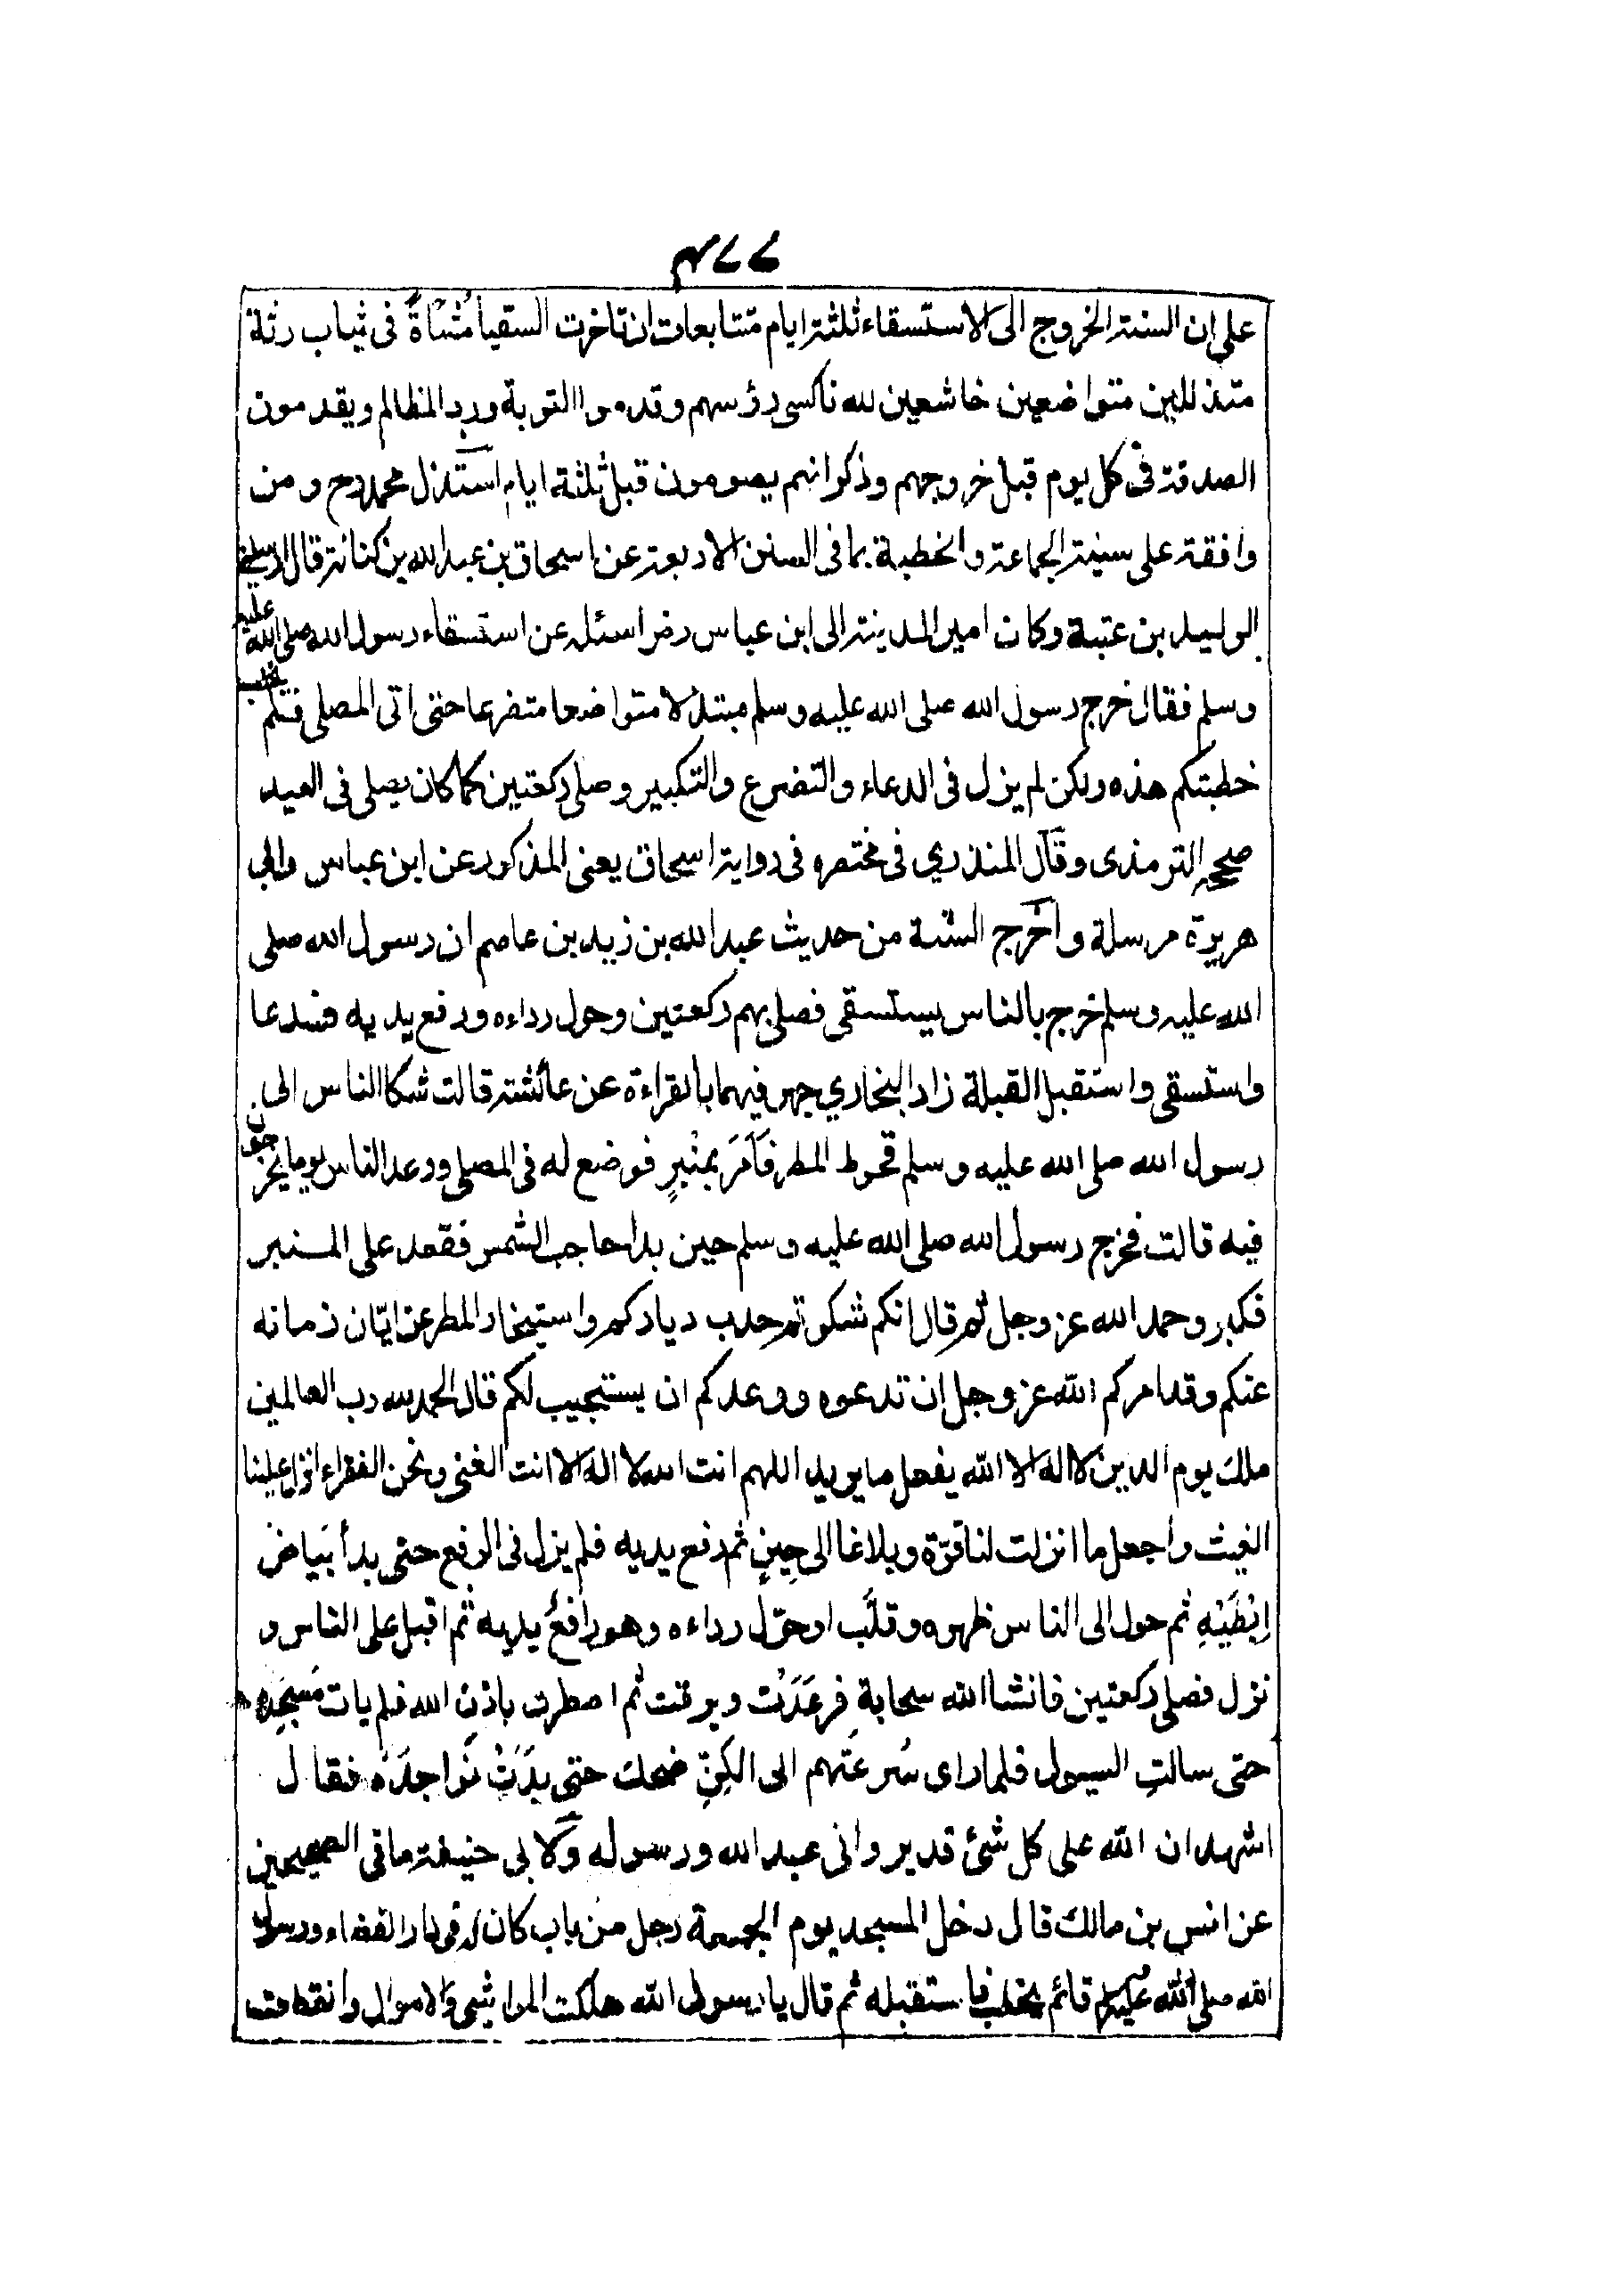 ۴۲۲
على ان السنة الخروج الى الاستسقاء ثلثة ايام متتابعات ان تاخرت السقيا مُشاةً فى ثياب رثة
متذللين متواضعين خاشعين لله ناكسى رؤسهم وقدموا التوبة ورد المظالم ويقدمون
الصدقة فى كل يوم قبل خروجهم وذكر انهم يصومون قبل ثلثة ايام استدل محمد رح ومن
وافقه على سنية الجماعة والخطبة بما فى السنن الاربعة عن اسحاق بن عبد الله بن كنانة قال ارسلنى
الوليد بن عتبة وكان امير المدينة الى ابن عباس رضـ اسئله عن استسقاء رسول الله صلى الله عليه
وسلم فقال خرج رسول الله صلى الله عليه وسلم مبتذلا متواضعا متضرعا حتى اتى المصلى فلم يخطب
خطبتكم هذه ولكن لم يزل فى الدعاء والتضرع والتكبير وصلى ركعتين كما كان يصلى فى العيد
صححه الترمذى وقال المنذري فى مختصره فى رواية اسحاق يعنى المذكور عن ابن عباس وابى
هريرة مرسلة واخرج الستة من حديث عبد الله بن زيد بن عاصم ان رسول الله صلى
الله عليه وسلم خرج بالناس يستسقى فصلى بهم ركعتين وحول رداءه ورفع يديه فدعا
واستسقى واستقبل القبلة زاد البخاري جهر فيهما بالقراءة عن عائشة قالت شكا الناس الى
رسول الله صلى الله عليه وسلم قحوط المطر فَاَمَرَ بمنْبرٍ فوضع له فى المصلى ووعد الناس يوما يخرجون
فيه قالت فخرج رسول الله صلى الله عليه وسلم حين بدا حاجب الشمس فقعد على المنبر
فكبر وحمد الله عز وجل ثم قال انكم شكوتم جدب دياركم واستيخار المطر عن ابّان زمانه
عنكم وقد امركم الله عز وجل ان تدعوه ووعدكم ان يستجيب لكم قال الحمد لله رب العالمين
ملك يوم الدين لا اله الا الله يفعل ما يريد اللهم انت الله لا اله الا انت الغنى ونحن الفقراء انزل علينا
الغيث واجعل ما انزلت لنا قوّة وبلاغا الى حِينٍ ثم رفع يديه فلم يزل فى الرفع حتى بدأ بَياض
اِبْطَيْهِ ثم حول الى الناس ظهره وقلّب او حوّل رداءه وهو رافعٌ يديه ثم اقبل على الناس و
نزل فصلى ركعتين فانشا الله سحابة فرعَدَتْ وبرقت ثم امطرت باذن الله فلم يات مَسجِده
حتى سالتِ السيول فلما راى سُرعَتَهم الى الكِنِّ ضحك حتى بدَتْ نَواجذَه فقال
اشهد ان الله على كل شئ قدير وانى عبد الله ورسوله ولابى حنيفة ما فى الصحيحين
عن انس بن مالك قال دخل المسجد يوم الجمعة رجل من باب كان نحو دار القضاء ورسول
الله صلى الله عليه وسلم قائم يخطب فاستقبله ثم قال يا رسول الله هلكت المواشى والاموال وانقطعت